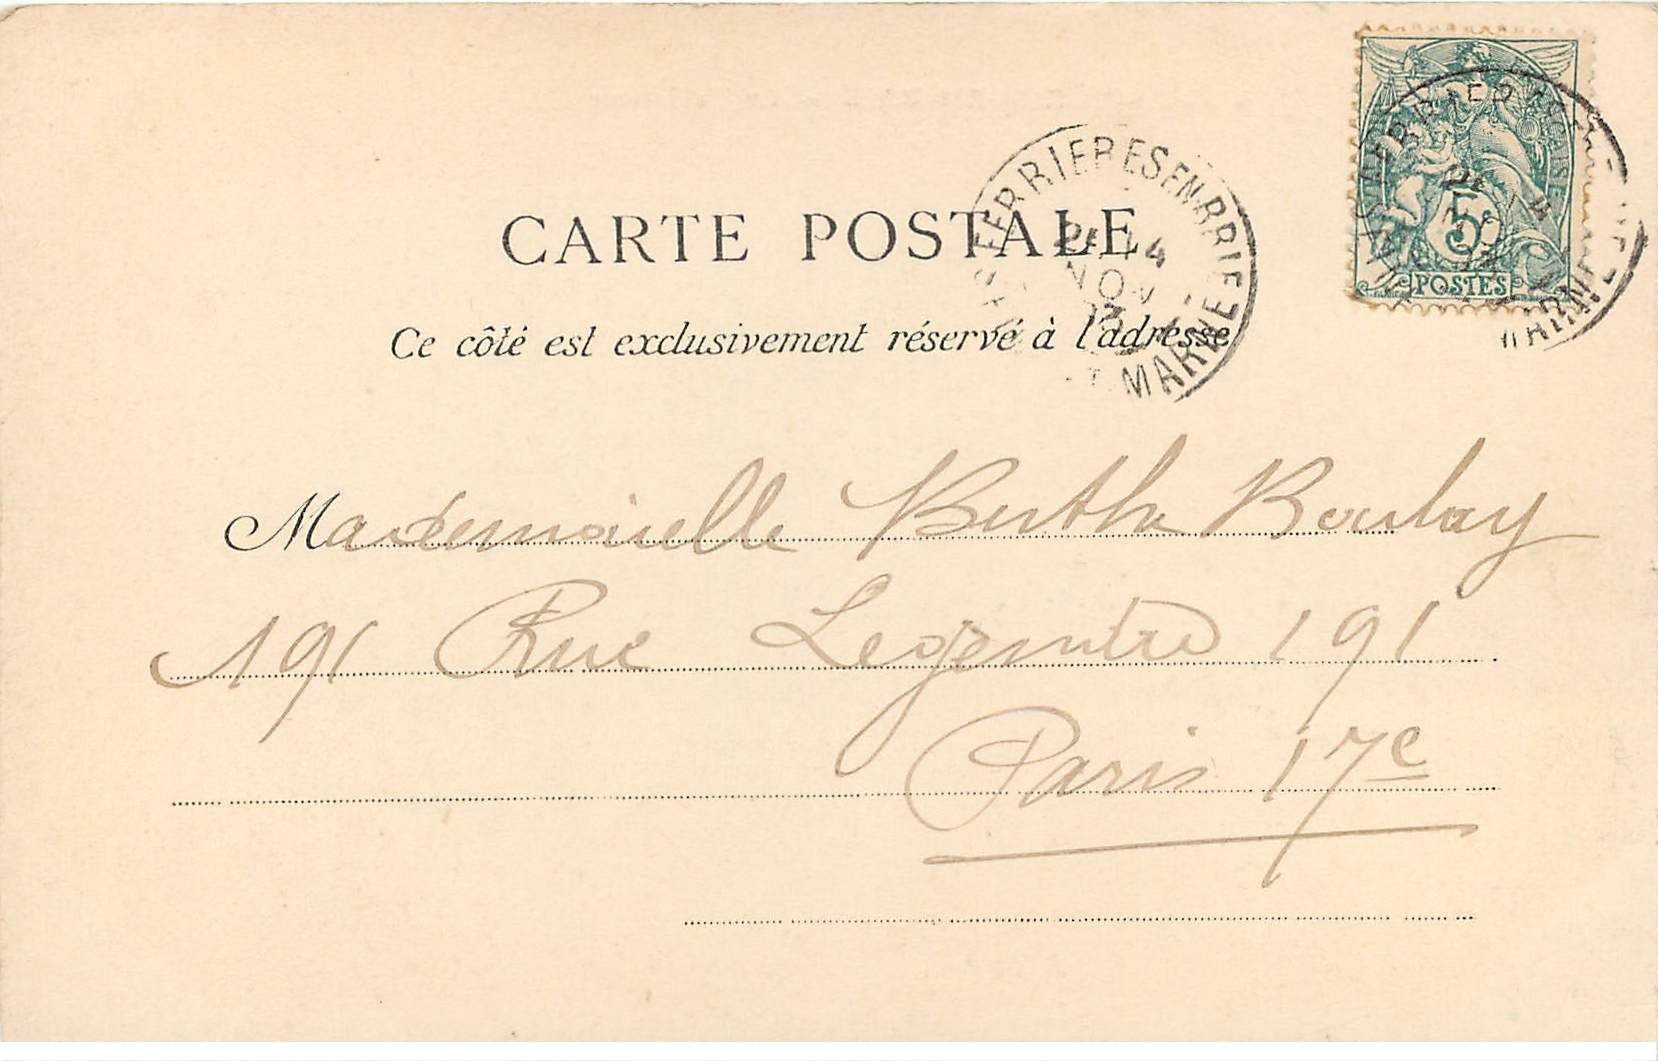 CARTE POSTALE
Ce côté est exclusivement réservé à l'adresse
FERRIERES EN BRIE
14
NOV
03
MARNE
5
POSTES
MARNE
Mademoiselle Berthe Boulay
191 Rue Legendre 191
Paris 17e